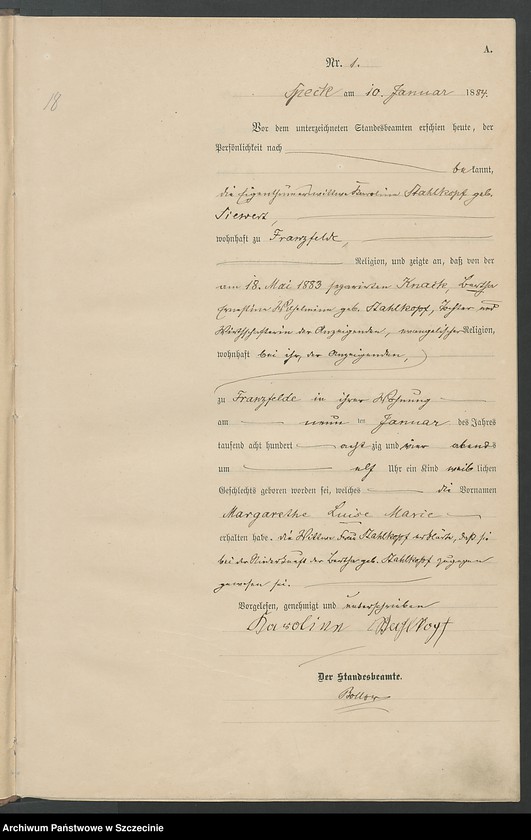 A.
18
Nr. 1.
Speck am 10. Januar 1884.
Vor dem unterzeichneten Standesbeamten erschien heute, der
Persönlichkeit nach
bekannt,
die Eigenthümerwittwe Karoline Stahlkopf geb.
Siewert,
wohnhaft zu Franzfelde,
Religion, und zeigte an, daß von der
am 18. Mai 1883 separirten Knaak, Bertha
Ernestine Wilhelmine geb. Stahlkopf, Tochter und
Wirthschafterin der Anzeigenden, evangelischer Religion,
wohnhaft bei ihr, der Anzeigenden,
zu Franzfelde in ihrer Wohnung
am neun ten Januar des Jahres
tausend acht hundert acht zig und vier abends
um elf Uhr ein Kind weiblichen
Geschlechts geboren worden sei, welches die Vornamen
Margarethe Luise Marie
erhalten habe. die Wittwe Frau Stahlkopf erklärte, daß sie
bei der Niederkunft der Bertha geb. Stahlkopf zugegen
gewesen sei.
Vorgelesen, genehmigt und unterschrieben
Karoline Stahlkopf
Der Standesbeamte.
Archiwum Państwowe w Szczecinie